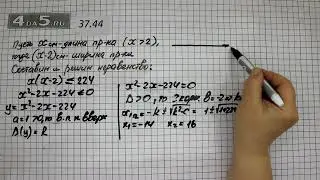 4DA5.RU
37.44
Пусть x см - длина пр-ка (x>2),
тогда (x-2) см - ширина пр-ка
Составим и решим неравенство:
x(x-2) ≤ 224
x²-2x-224 ≤ 0
y = x²-2x-224
a=1>0, то в. п. к вверх
D(y) = R
x²-2x-224=0
D>0, то 2 корн.
x₁= -14 x₂= 16